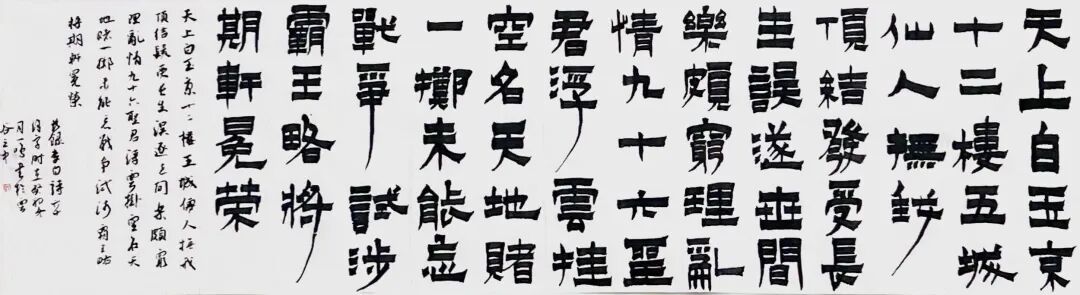 天上白玉京
十二樓五城
仙人撫我
頂結發受長
生誤逐世間
樂頗窮理亂
情九十六聖
君浮雲挂
空名天地賭
一擲未能忘
戰爭試涉
霸王略將
期軒冕榮
天上白玉京十二樓五城仙人撫我
頂結髮受長生誤逐世間樂頗窮
理亂情九十六聖君浮雲掛空名天
地賭一擲未能忘戰爭試涉霸王略
將期軒冕榮
錄李白詩